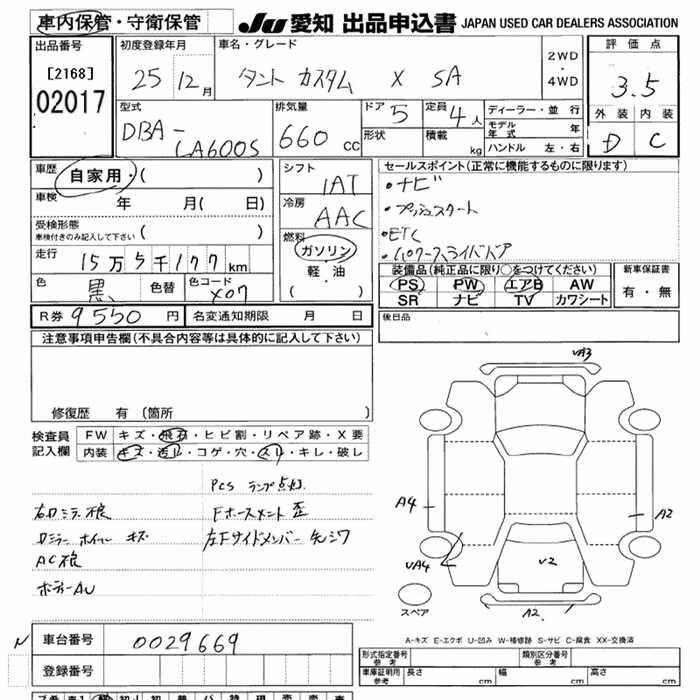 車内保管・守衛保管
JU 愛知 出品申込書 JAPAN USED CAR DEALERS ASSOCIATION
出品番号
[2168]
02017
初度登録年月
25 12月
車名・グレード
タント カスタム X SA
2WD
・
4WD
評価点
3.5
外装 内装
D C
型式
DBA-
LA600S
排気量
660 cc
ドア 5
形状
定員 4人
積載 kg
ディーラー・並 行
モデル年式 年
ハンドル 左・右
車歴
自家用・( )
車検 年 月( 日)
受検形態
車検付きのみ記入して下さい ( )
走行 15万5千177km
色 黒 色替 色コード X07
シフト
IAT
冷房
AAC
燃料
ガソリン
軽・油
( )
セールスポイント(正常に機能するものに限ります)
・ナビ
・プッシュスタート
・ETC
・パワースライドドア
装備品(純正品に限り○をつけてください)
PS PW エアB AW
SR ナビ TV カワシート
新車保証書
有・無
R券 9550 円 名変通知期限 月 日
後日品
注意事項申告欄(不具合内容等は具体的に記入して下さい)
修復歴 有(箇所 )
検査員
記入欄
FW キズ・飛石・ヒビ割・リペア跡・X要
内装 キズ・汚レ・コゲ・穴・スレ・キレ・破レ
PCS ランプ点灯
右ロミラー痕 Fホースメント歪
ロミラー ホイール キズ 左Fサイドメンバー先シワ
AC痕
ボディーAU
VA3
A4
A2
UA4
V2
A2
スペア
A-キズ E-エクボ U-凹み W-補修跡 S-サビ C-腐食 XX-交換済
N 車台番号 0029669
登録番号
形式指定番号
参考
類別区分番号
参考
車庫証明用
参考
長さ 幅 高さ